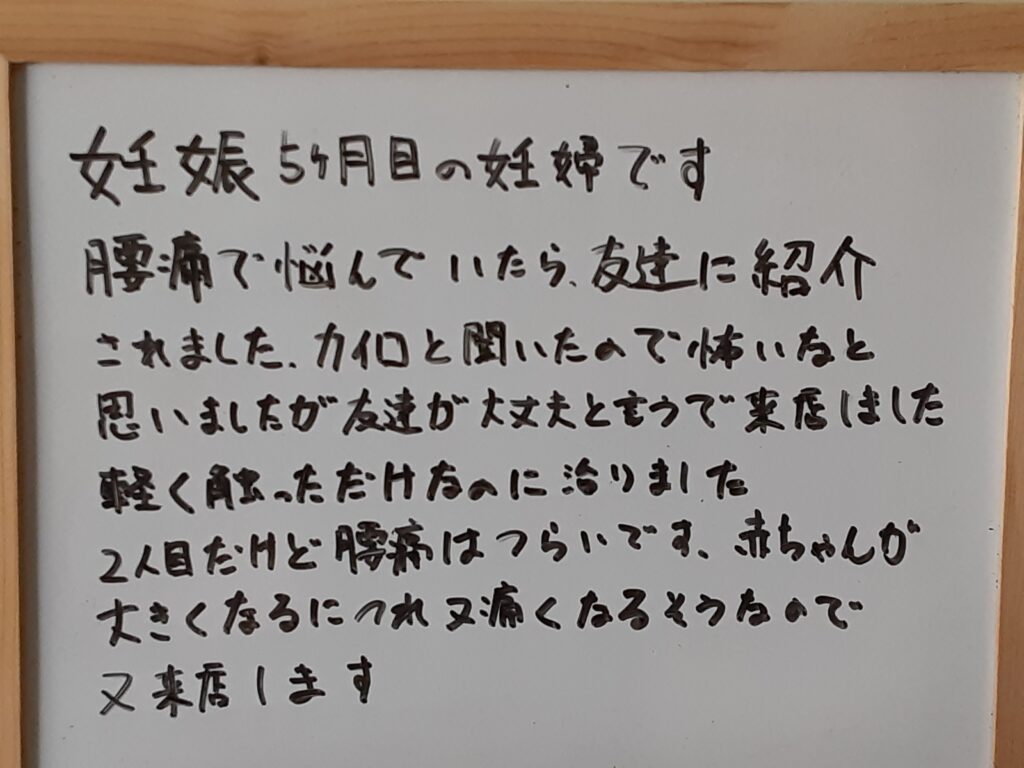 妊娠5ヶ月目の妊婦です
腰痛で悩んでいたら、友達に紹介
されました、カイロと聞いたので怖いなと
思いましたが友達が大丈夫と言うで来店しました
軽く触っただけなのに治りました
2人目だけど腰痛はつらいです、赤ちゃんが
大きくなるにつれ又痛くなるそうなので
又来店します